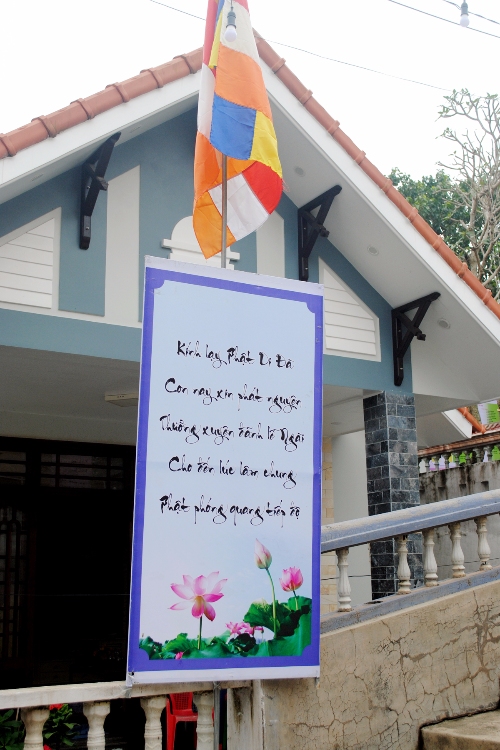 Kính lạy Phật Di Đà
Con nay xin phát nguyện
Thường xuyên đảnh lễ Ngài
Cho đến lúc lâm chung
Phật phóng quang tiếp độ